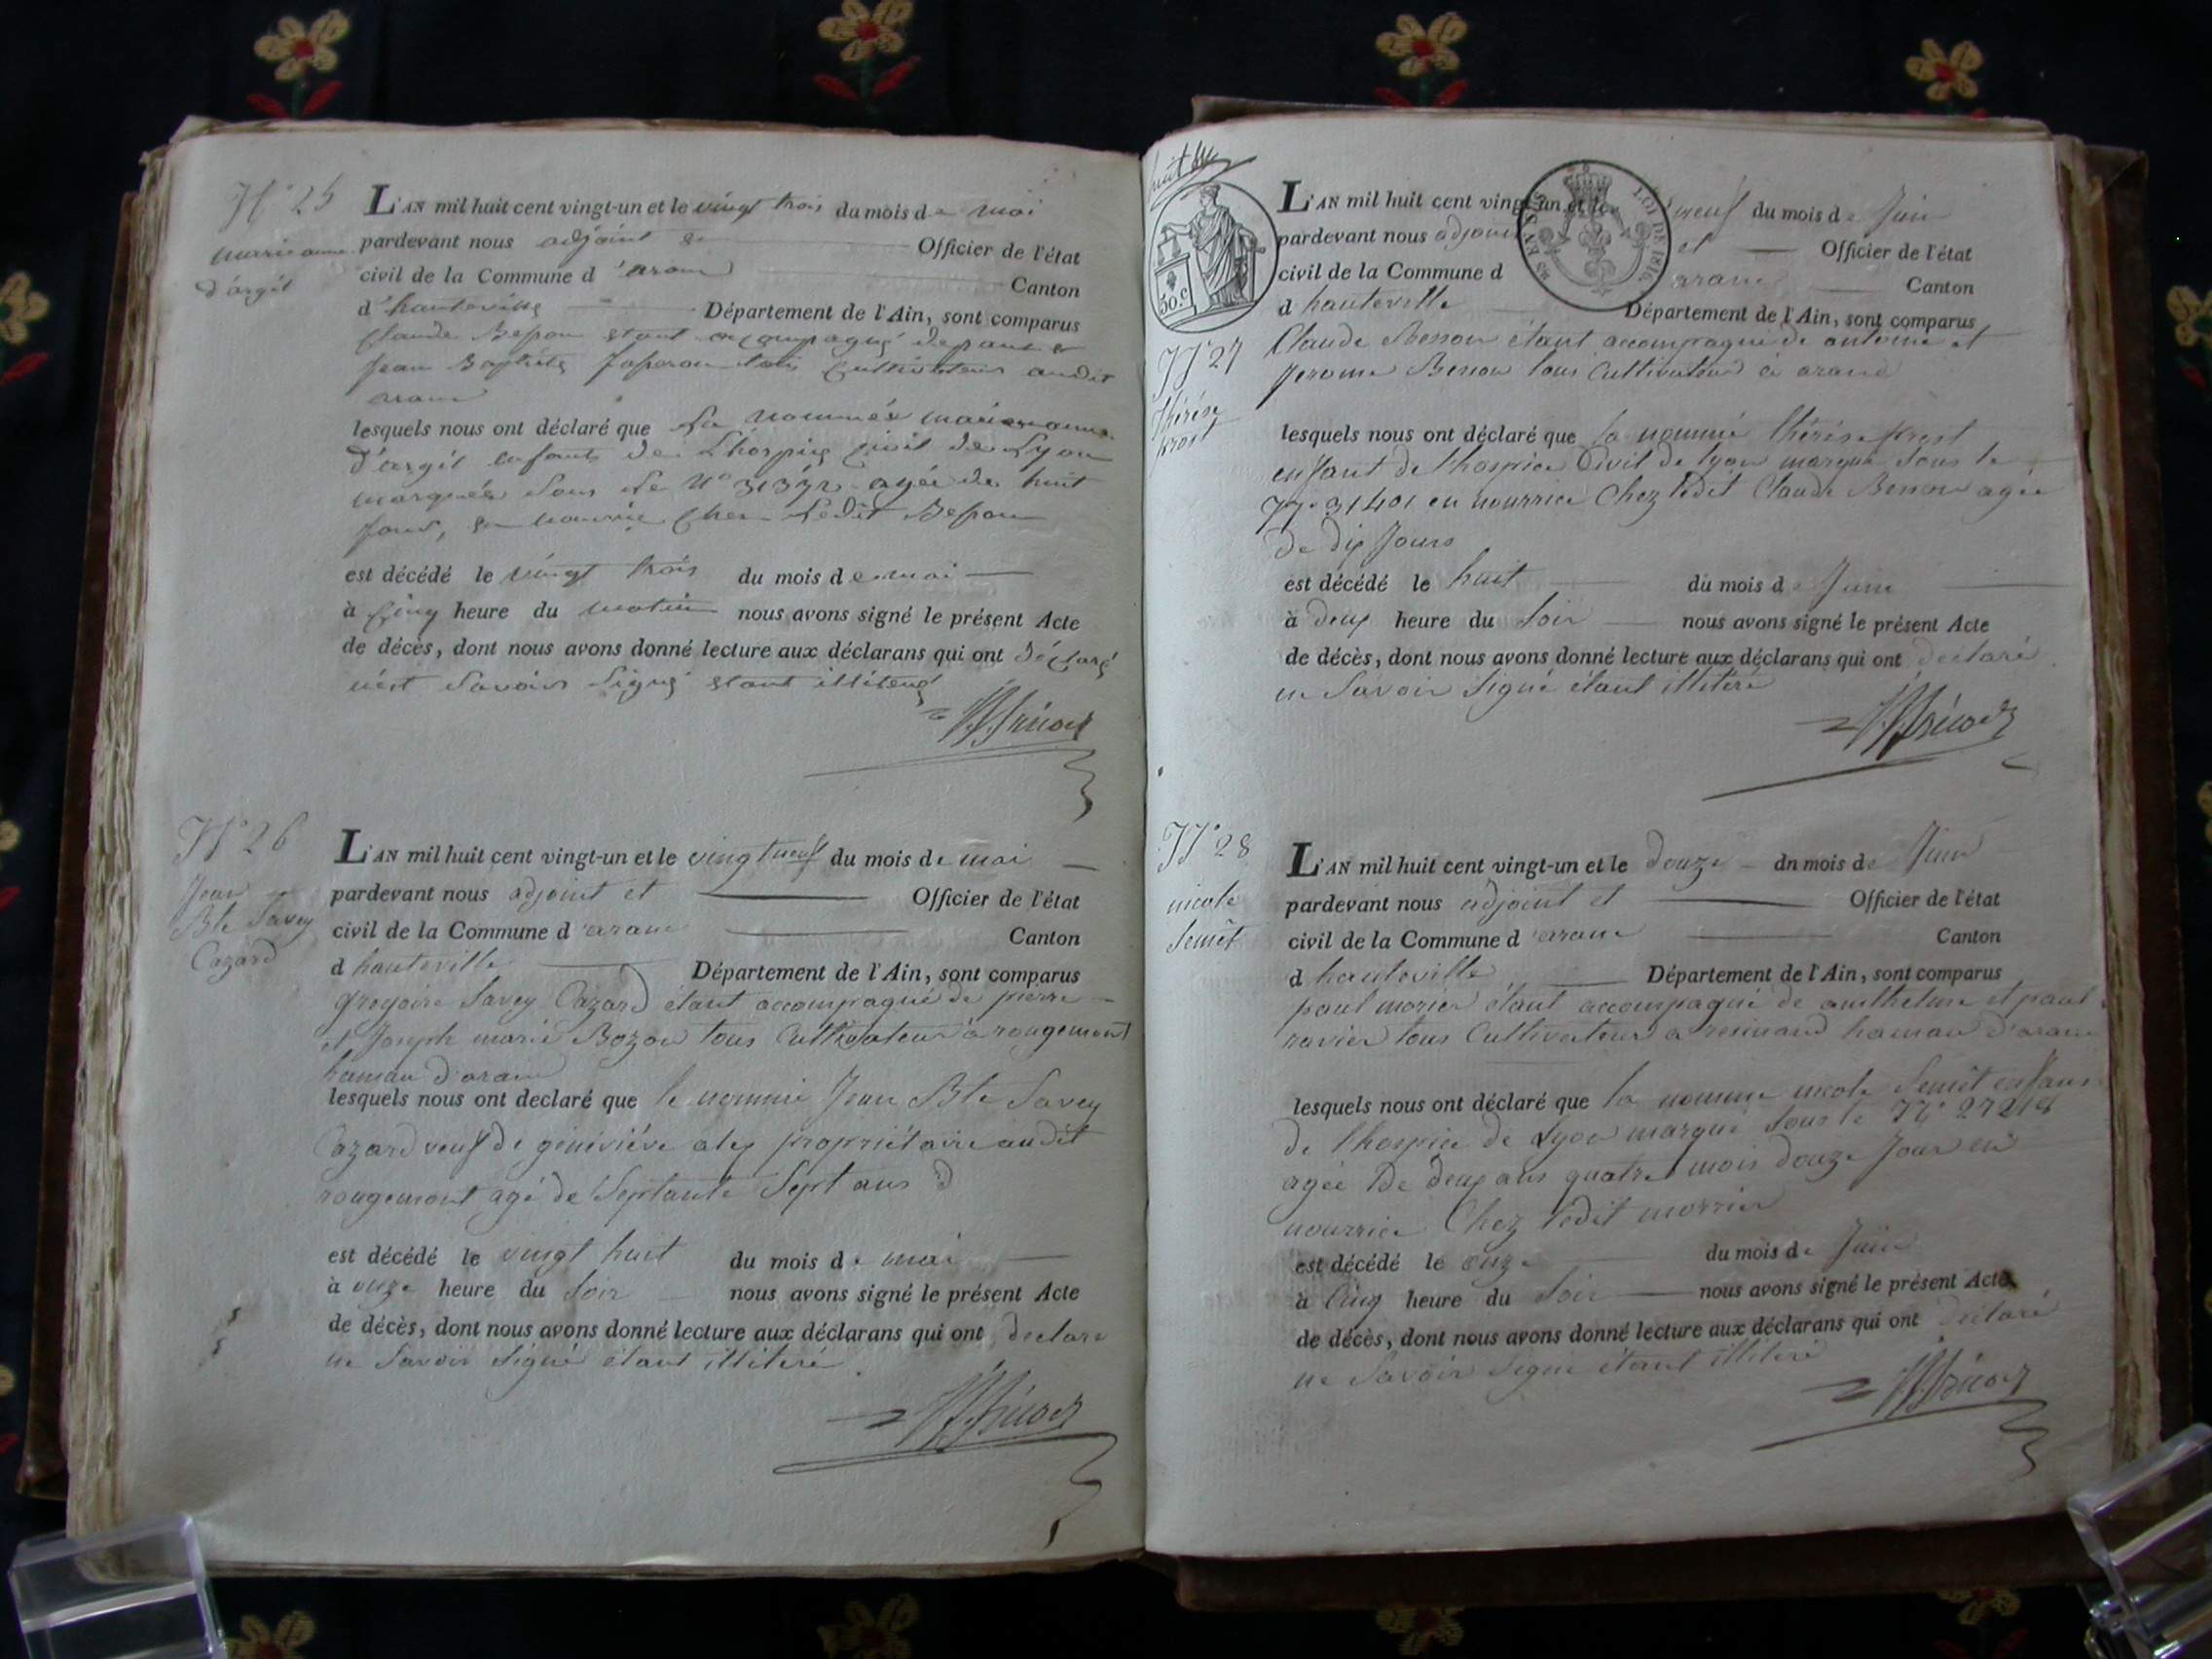 N° 25
marieanne
d'argit
L'AN mil huit cent vingt-un et le vingt trois du mois de mai
pardevant nous adjoint et Officier de l'état
civil de la Commune d'aranc Canton
d'hauteville Département de l'Ain, sont comparus
Claude Besson etant accompagné de paul et
Jean Baptiste tous Cultivateurs audit
aranc
lesquels nous ont déclaré que La nommée marieanne
d'argit enfant de L'hospice Civil de Lyon
marquée sous Le N° agée de huit
jours, en nourrice Chez Ledit Besson
est décédé le vingt trois du mois de mai
à Cinq heure du matin nous avons signé le présent Acte
de décès, dont nous avons donné lecture aux déclarans qui ont déclaré
Savoir Signé etant illiteré
N° 26
Jean
Bte Savey
Cazard
L'AN mil huit cent vingt-un et le vingt neuf du mois de mai
pardevant nous adjoint et Officier de l'état
civil de la Commune d aranc Canton
d hauteville Département de l'Ain, sont comparus
gregoire Savey Cazard étant accompagné de pierre
et Joseph marie Bozon tous Cultivateur à rougemont
hamau d'aranc
lesquels nous ont declaré que le nommé Jean Bte Savey
Cazard veuf de géneviéve aley propriétaire audit
rougemont agé de Septante Sept ans
est décédé le vingt huit du mois de mai
à onze heure du Soir nous avons signé le présent Acte
de décès, dont nous avons donné lecture aux déclarans qui ont declaré
ne Savoir Signé étant illiteré
50.c
LOI DE 1816
N° 27
thérése
prost
L'AN mil huit cent vingt-un et le neuf du mois de Juin
pardevant nous adjoint et Officier de l'état
civil de la Commune d aranc Canton
d hauteville Département de l'Ain, sont comparus
Claude Besson étant accompagné de antoine et
Jerome Besson tous Cultivateurs à aranc
lesquels nous ont déclaré que la nommé thérése prost
enfant de l'hospice Civil de lyon marqué Sous le
N° 31401 en nourrice Chez ledit Claude Besson agée
de dix Jours
est décédé le huit du mois de Juin
à deux heure du Soir nous avons signé le présent Acte
de décès, dont nous avons donné lecture aux déclarans qui ont declaré
ne Savoir Signé étant illiteré
N° 28
nicole
Semèt
L'AN mil huit cent vingt-un et le douze dn mois de Juin
pardevant nous adjoint et Officier de l'état
civil de la Commune d aranc Canton
d hauteville Département de l'Ain, sont comparus
paul morier étant accompagné de anthelme et paul
ravier tous Cultivateur a resinand hamau d'aranc
lesquels nous ont déclaré que la nommé nicole Semèt enfant
de l'hospice de Lyon marqué Sous le N° 27218
agée De deux ans quatre mois douze Jour en
nourrice Chez ledit morrier
est décédé le onze du mois de Juin
à Cinq heure du Soir nous avons signé le présent Acte
de décès, dont nous avons donné lecture aux déclarans qui ont déclaré
ne Savoir Signé étant illiteré